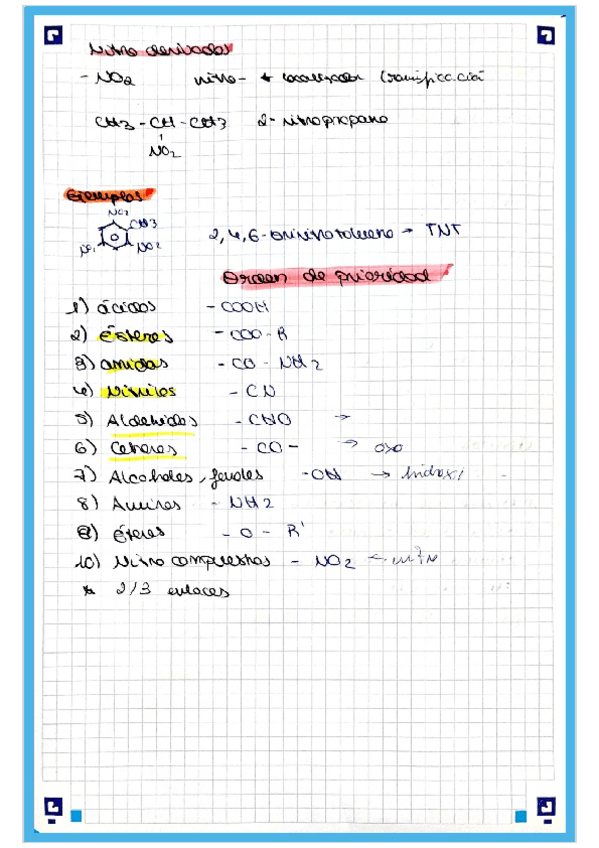 Nitro derivados
- NO2 nitro- + localizador (ramificación
CH3 - CH - CH3 2-nitropropano
NO2
Ejemplos
NO2
CH3
2,4,6-trinitrotolueno → TNT
NO2
Orden de prioridad
1) ácidos - COOH
2) Ésteres - COO - R
3) amidas - CO - NH2
4) Nitrilos - CN
5) Aldehídos - CHO →
6) Cetonas - CO - → oxo
7) Alcoholes, fenoles - OH → hidroxi
8) Aminas - NH2
9) éteres - O - R'
10) Nitro compuestos - NO2 ← nitro
* 2/3 enlaces